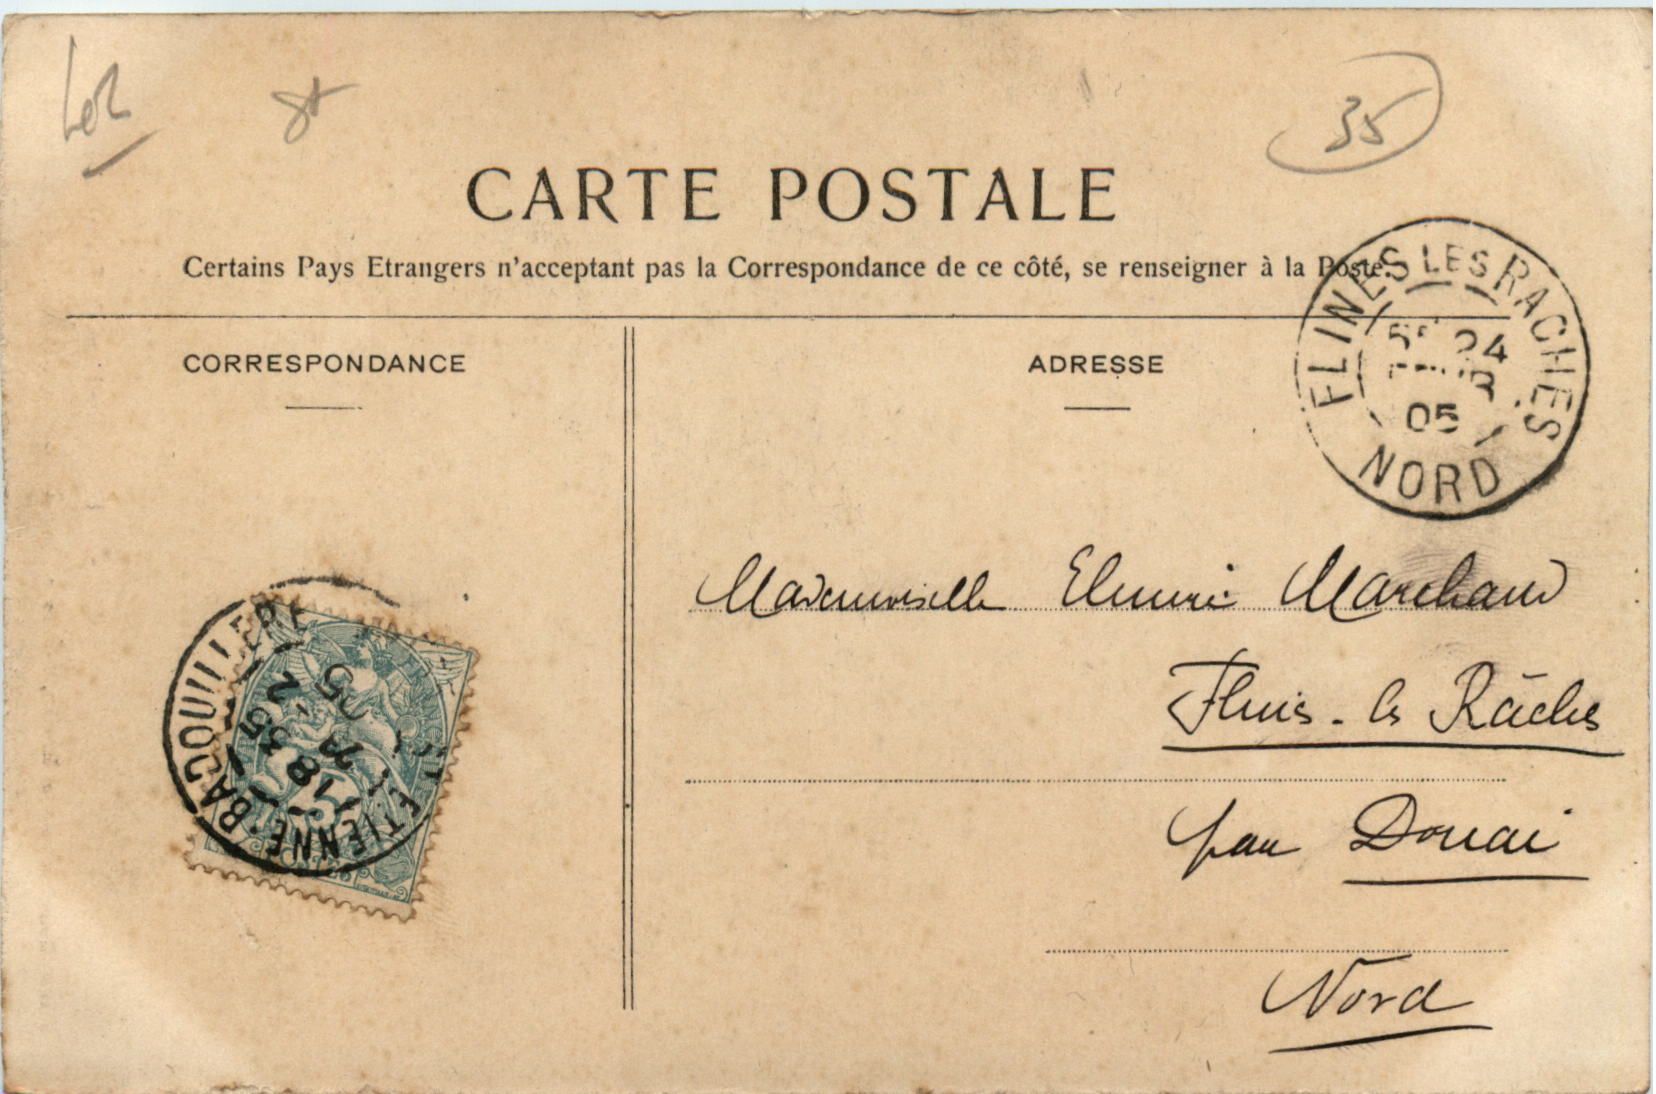 35
CARTE POSTALE
Certains Pays Etrangers n'acceptant pas la Correspondance de ce côté, se renseigner à la Poste.
FLINES LES RACHES
24
05
NORD
CORRESPONDANCE
ADRESSE
Mademoiselle Elmire Marchand
Flines-les Râches
par Douai
Nord
ST ETIENNE-BADOUILLERE
18 35
2
05